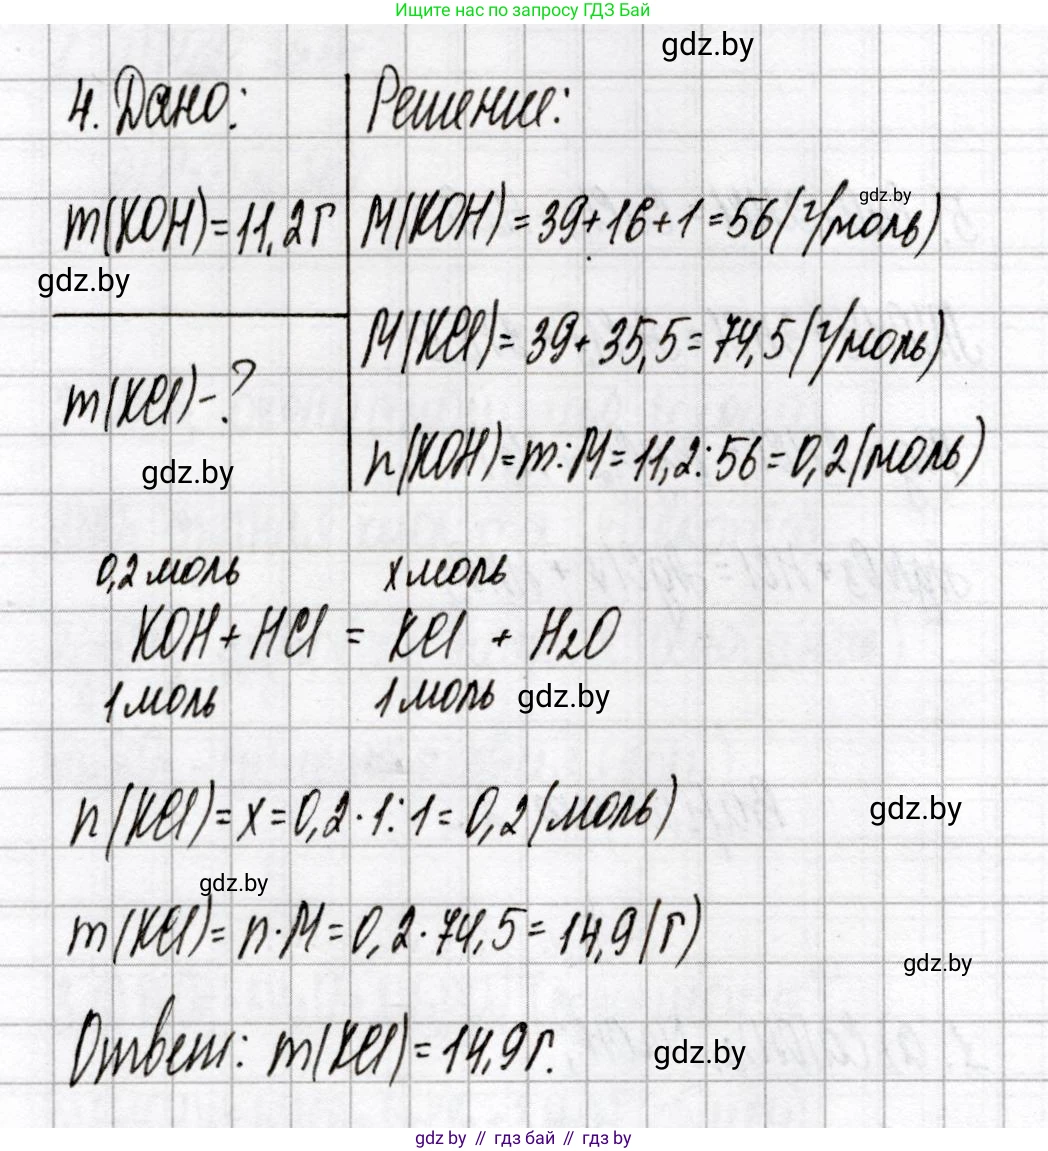 Ищите нас по запросу ГДЗ Бай
gdz.by
4. Дано:
Решение:
gdz.by
m(KOH)=11,2г
M(KOH)=39+16+1=56(г/моль)
gdz.by
M(KCl)=39+35,5=74,5(г/моль)
m(KCl)-?
n(KOH)=m:M=11,2:56=0,2(моль)
gdz.by
0,2 моль x моль
KOH + HCl = KCl + H₂O
1 моль 1 моль
gdz.by
n(KCl)=x=0,2·1:1=0,2(моль)
gdz.by
gdz.by
m(KCl)=n·M=0,2·74,5=14,9(г)
gdz.by
Ответ: m(KCl)=14,9г.
gdz.by
gdz by // гдз бай // gdz by